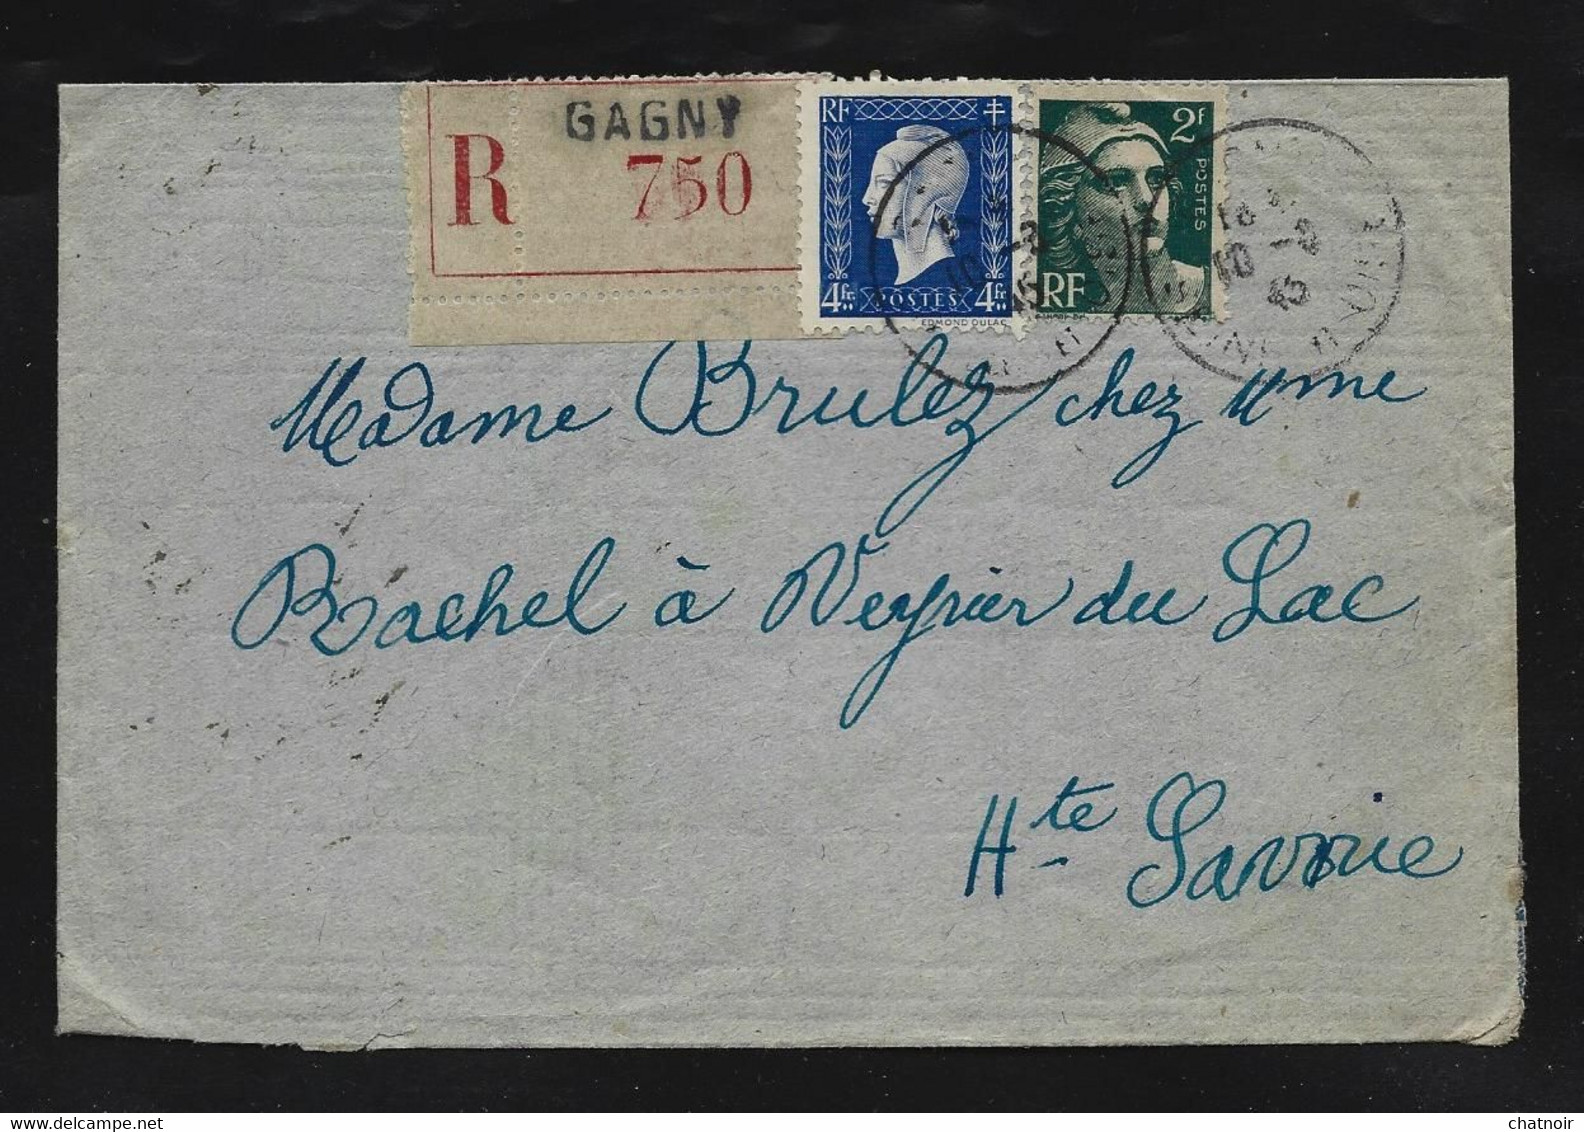 GAGNY
R 750
RF
4fr
POSTES
4fr
EDMOND DULAC
2f
POSTES
RF
Madame Brulez chez Mme
Rachel à Veyrier du Lac
Hte Savoie
chatnoir